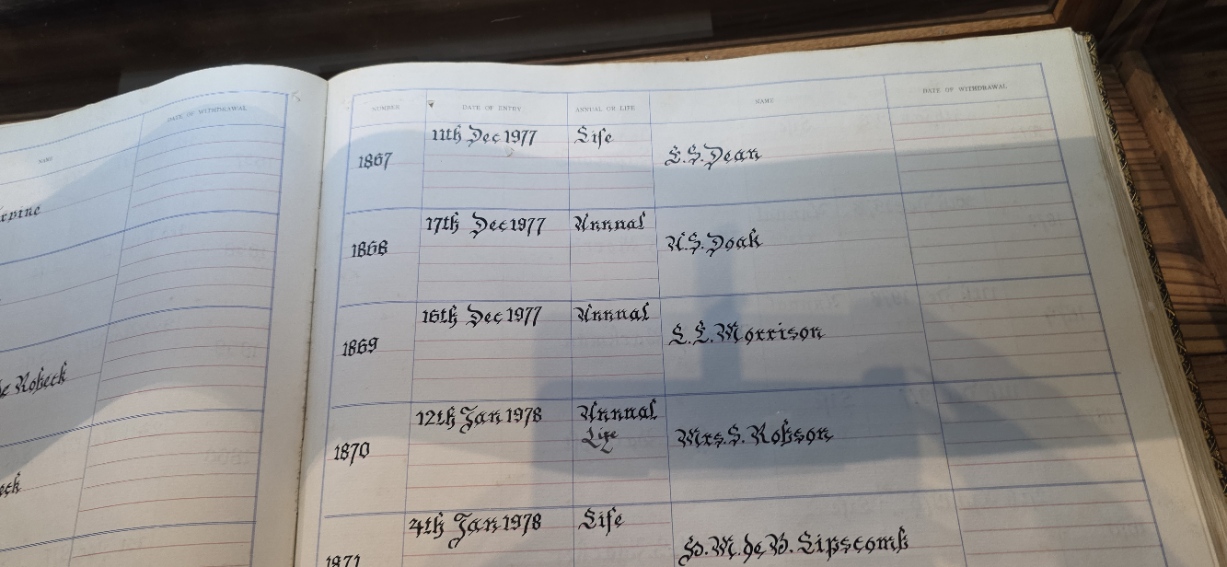 NAME
DATE OF WITHDRAWAL
de Robeck
NUMBER
DATE OF ENTRY
ANNUAL OR LIFE
NAME
DATE OF WITHDRAWAL
1867
11th Dec 1977
Life
1868
17th Dec 1977
Annual
1869
16th Dec 1977
Annual
Morrison
1870
12th Jan 1978
Annual
Life
Mrs. S. Robson
1871
4th Jan 1978
Life
de B. Lipscomb